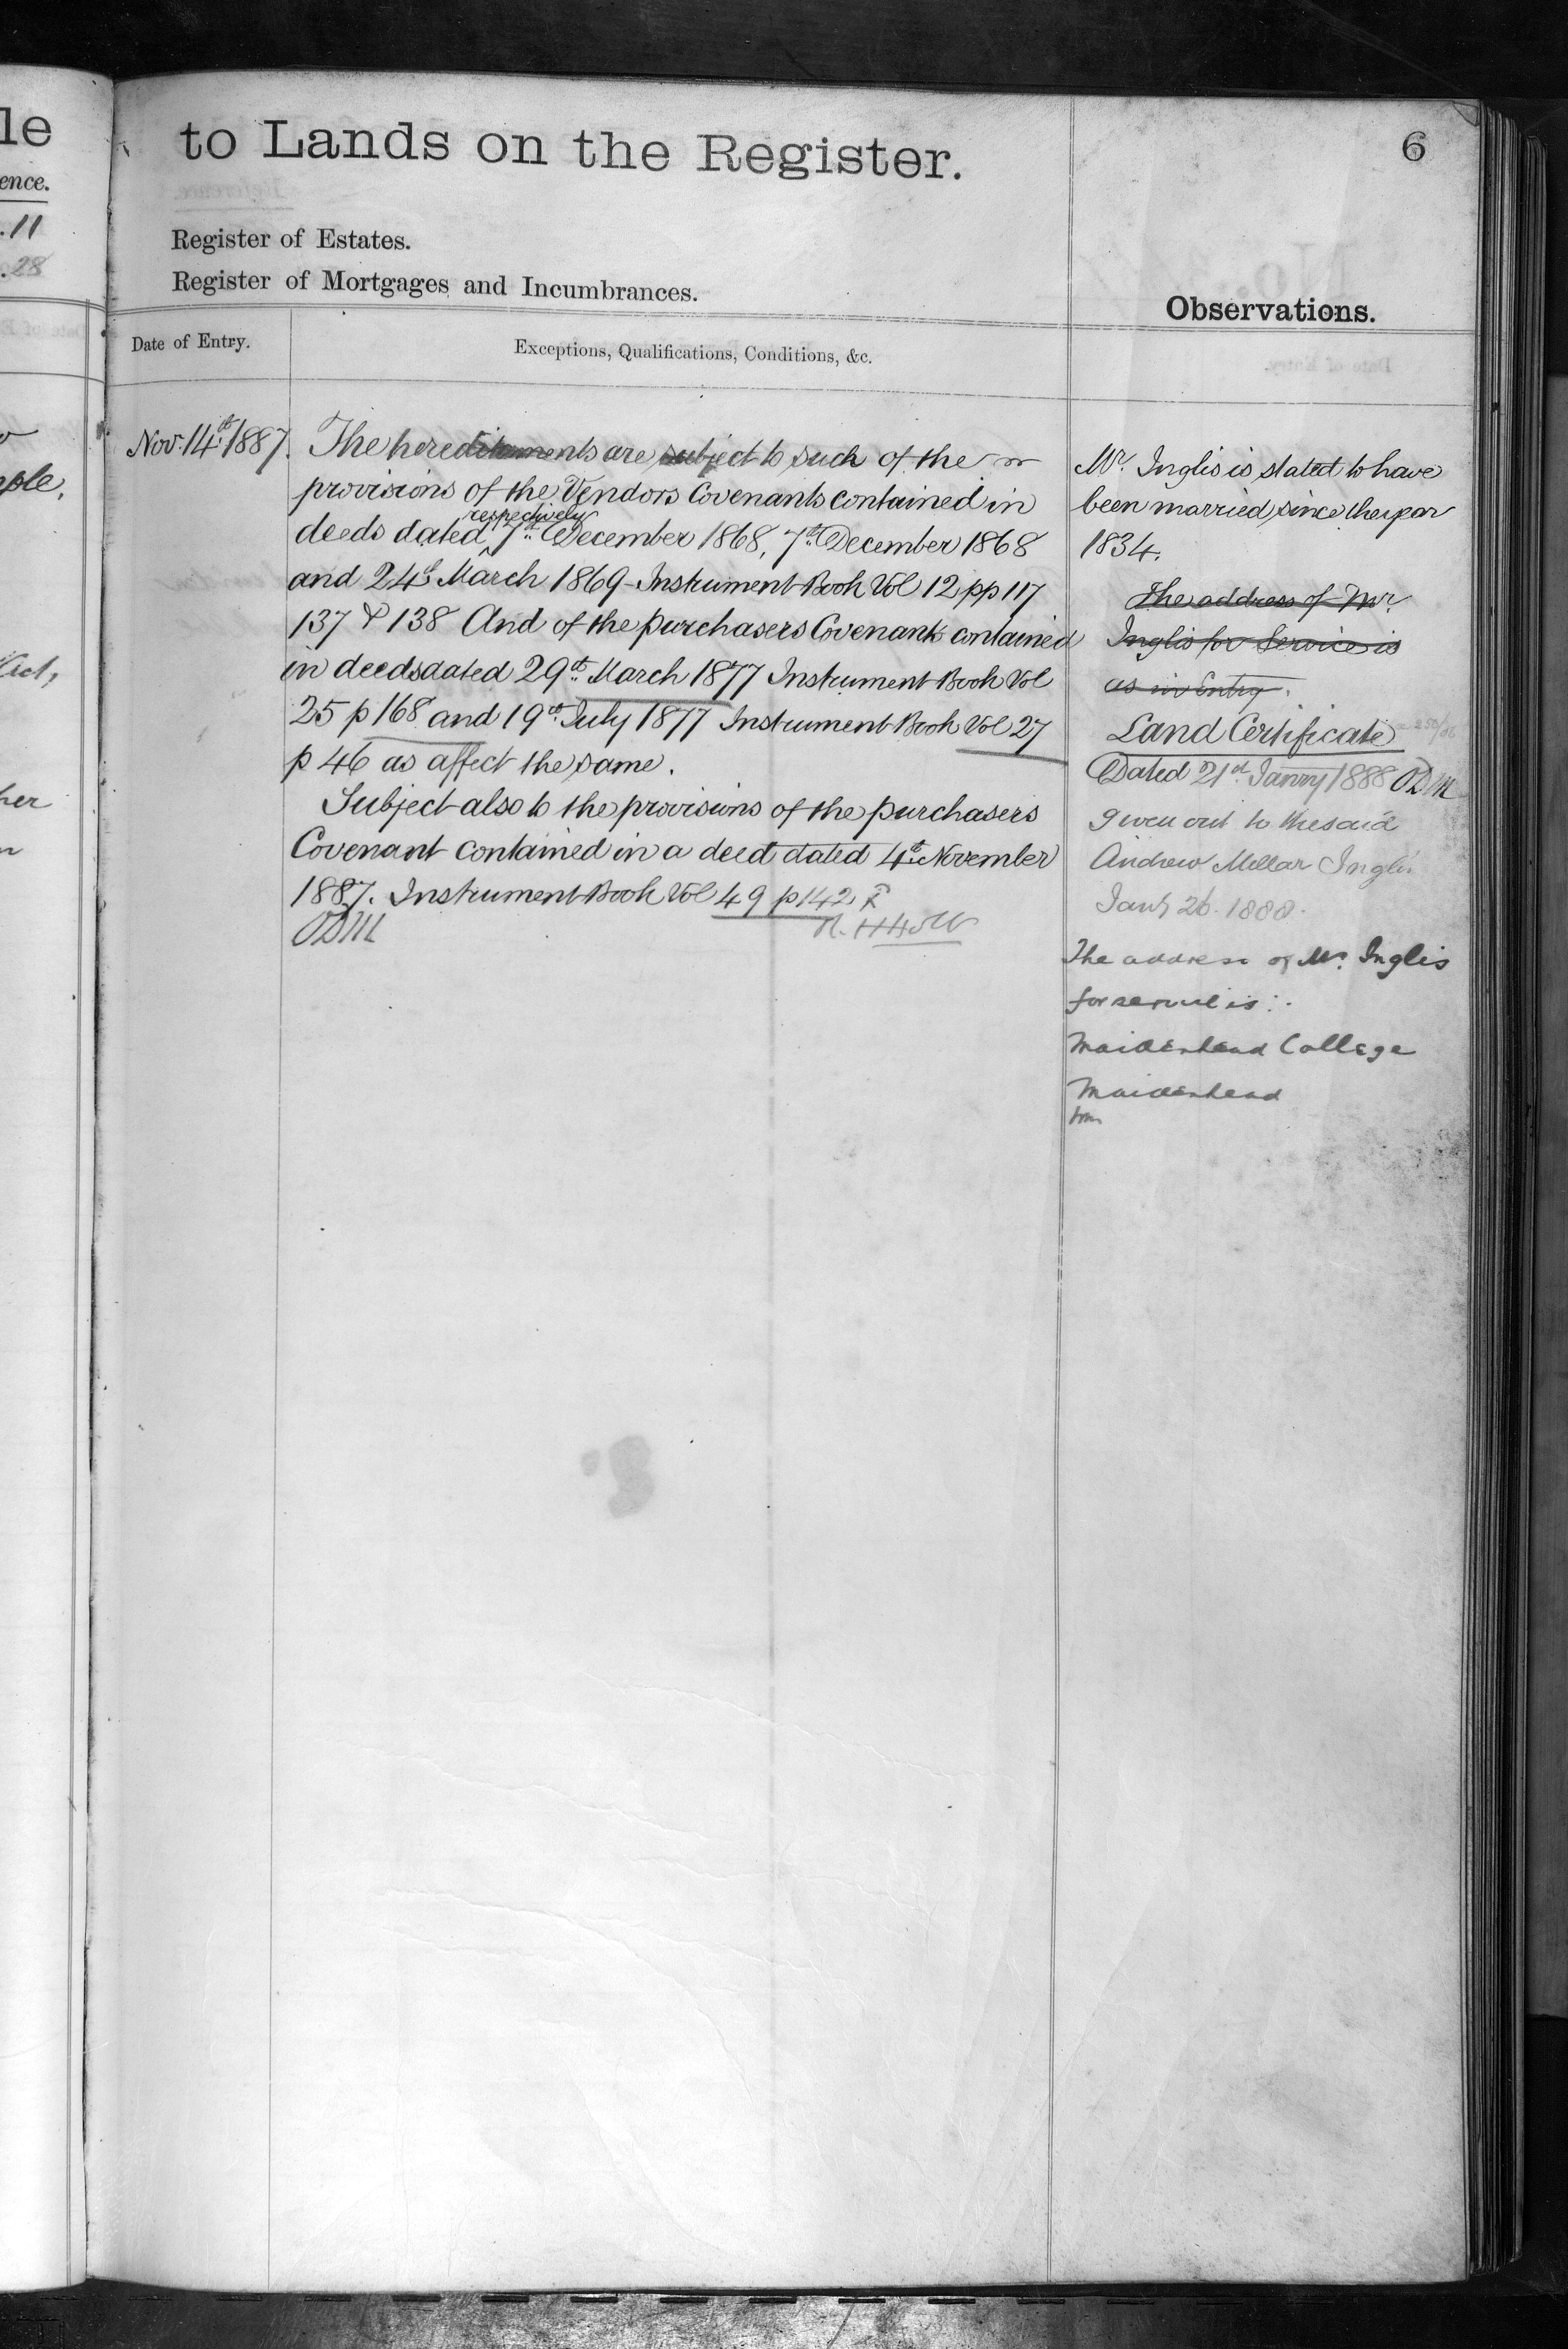 le
ence.
.11
.28
to Lands on the Register.
6
Register of Estates.
Register of Mortgages and Incumbrances.
Observations.
Date of Entry.
Exceptions, Qualifications, Conditions, &c.
Nov. 14th 1887.
The hereditaments are subject to such of the
provisions of the Vendors Covenants contained in
respectively
deeds dated 7th December 1868, 7th December 1868
and 24th March 1869 Instrument Book Vol 12 pp 117
137 & 138 And of the purchasers Covenants contained
in deeds dated 29th March 1877 Instrument Book Vol
25 p 168 and 19th July 1877 Instrument Book Vol 27
p 46 as affect the same.
Subject also to the provisions of the purchasers
Covenant contained in a deed dated 4th November
1887. Instrument Book Vol 49 p 142
Mr. Inglis is stated to have
been married since the year
1834.
The address of Mr.
Inglis for Service is
as in Entry.
Land Certificate
Dated 21st Janry 1888
given out to the said
Andrew Millar Inglis
Jany 26. 1888.
The address of Mr. Inglis
for service is :-
Maidenhead College
Maidenhead
ple.
Vict,
her